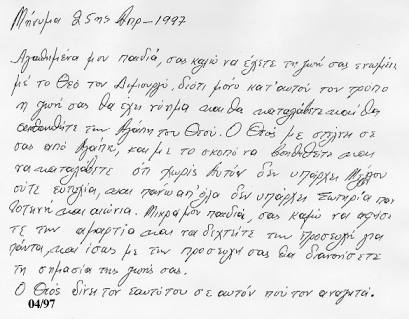 Μήνυμα 25ης Απρ-1997
Αγαπημένα μου παιδιά, σας καλώ να έχετε τη ζωή σας ενωμένη
με το Θεό τον Δημιουργό, διότι μόνο κατ' αυτόν τον τρόπο
η ζωή σας θα έχει νόημα και θα καταλάβετε και θα
την Αγάπη του Θεού. Ο Θεός με στέλνει σε
σας από Αγάπη, και με το σκοπό να βοηθηθείτε και
να καταλάβετε ότι χωρίς Αυτόν δεν υπάρχει Μέλλον
ούτε ευτυχία, και πάνω απ' όλα δεν υπάρχει Σωτηρία παν
τοτινή και αιώνια. Μικρά μου παιδιά, σας καλώ να αφήσε
τε την αμαρτία και να δεχτείτε την προσευχή για
πάντα, και ίσως με την προσευχή σας θα διανοήσετε
τη σημασία της ζωής σας.
Ο Θεός δίνει τον εαυτό του σε αυτόν που τον αναζητά.
04/97